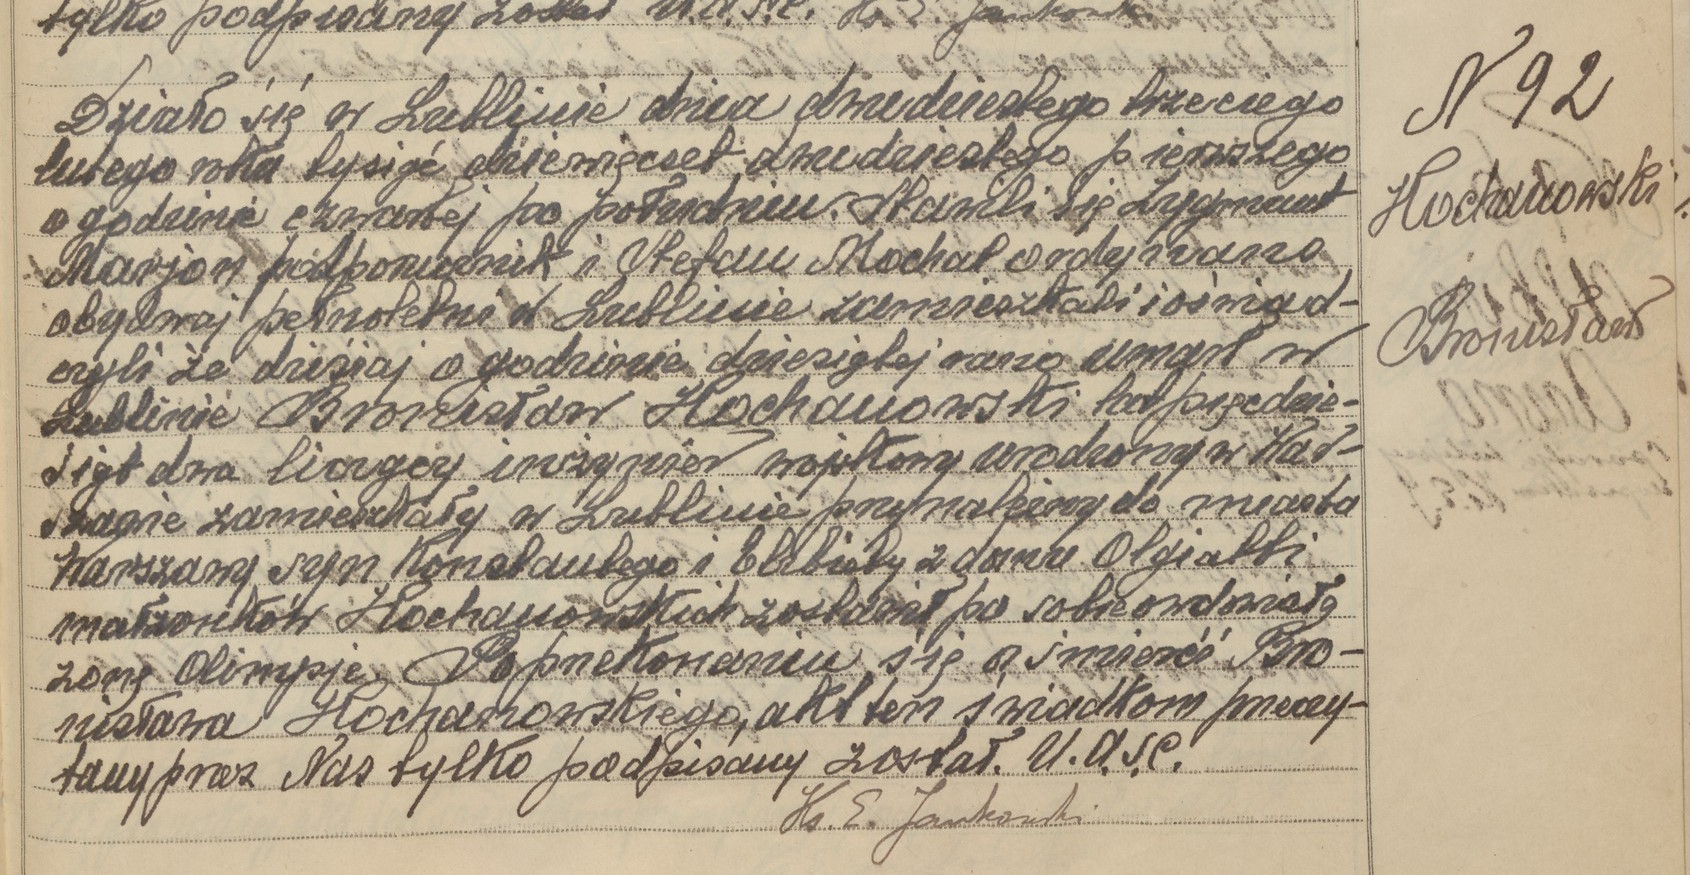 tylko podpisany został U.A.S.C. Ks. E. Jankowski
N 92
Kochanowski
Bronisław
Działo się w Lublinie dnia dwudziestego trzeciego
lutego roku tysiąc dziewięcset dwudziestego pierwszego
o godzinie czwartej po południu. Stawili się Zygmunt
Marjon podporucznik i Stefan Mochal ordynans
obydwaj pełnoletni w Lublinie zamieszkali i oświad-
czyli że dzisiaj o godzinie dziesiątej rano umarł w
Lublinie Bronisław Kochanowski lat pięćdzie-
siąt dwa liczący inżynier wojskowy urodzony w War-
szawie zamieszkały w Lublinie przynależny do miasta
Warszawy syn Konstantego i Elżbiety z domu Olgiatti
małżonków Kochanowskich zostawił po sobie owdowiałą
żonę Olimpję. Po przekonaniu się o śmierci Bro-
nisława Kochanowskiego, akt ten świadkom przeczy-
tany przez Nas tylko podpisany został. U.A.S.C.
Ks. E. Jankowski